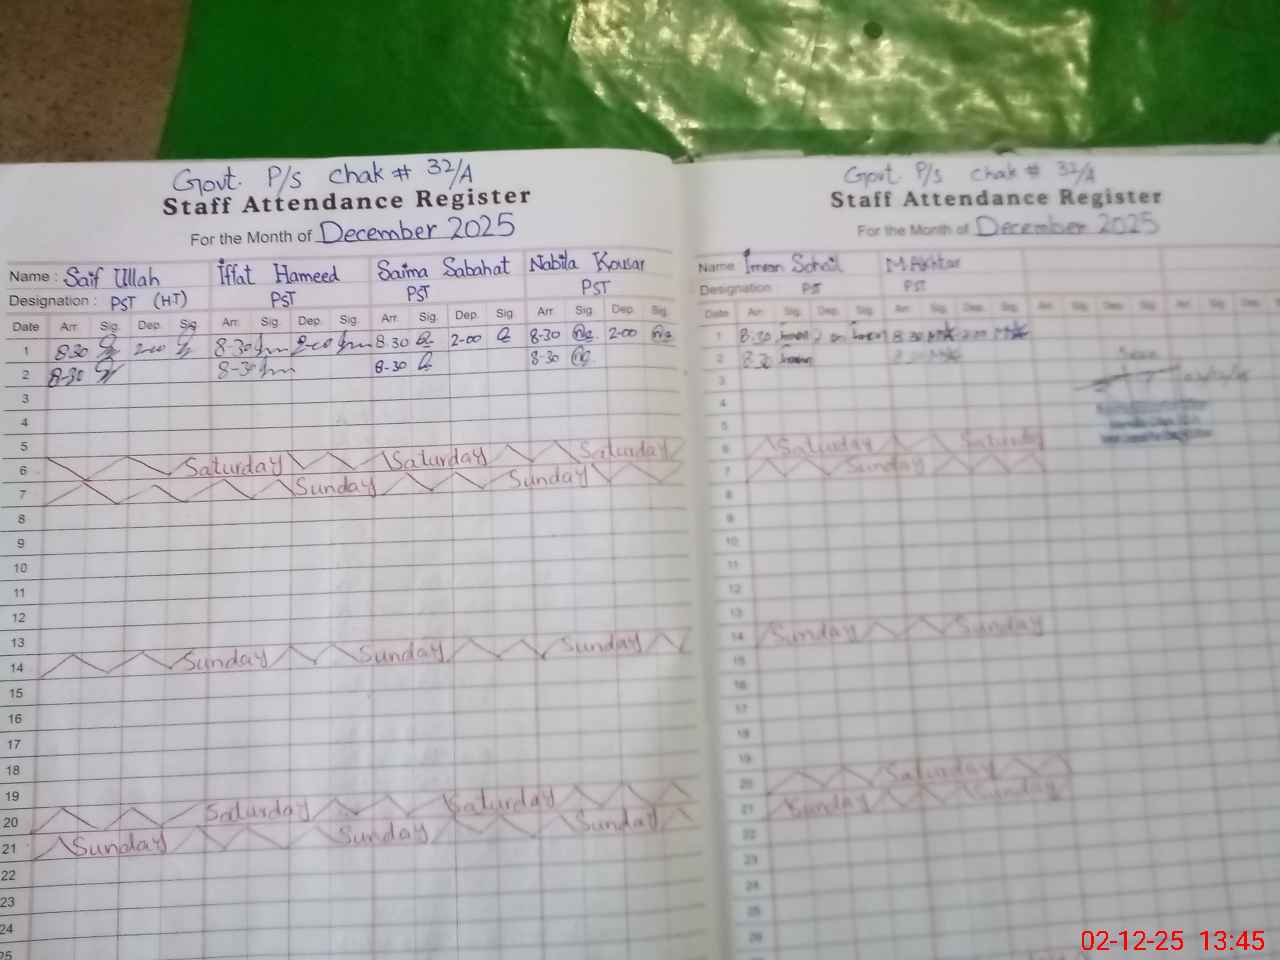 Govt. P/S Chak # 32/A
Staff Attendance Register
For the Month of December 2025
Name : Saif Ullah Iffat Hameed Saima Sabahat Nabila Kousar
Designation : PST (HT) PST PST PST
Date Arr. Sig. Dep. Sig. Arr. Sig. Dep. Sig. Arr. Sig. Dep. Sig. Arr. Sig. Dep. Sig.
1 8-30 2-00 8-30 2-00 8.30 2-00 8-30 2-00
2 8-30 8-30 8-30 8-30
3
4
5
6 Saturday Saturday Saturday
7 Sunday Sunday
8
9
10
11
12
13
14 Sunday Sunday Sunday
15
16
17
18
19
20 Saturday Saturday
21 Sunday Sunday Sunday
22
23
24
25
Govt. P/S Chak # 32/A
Staff Attendance Register
For the Month of December 2025
Name Imran Sohail M.Akhtar
Designation PST PST
Date Arr. Sig. Dep. Sig. Arr. Sig. Dep. Sig. Arr. Sig. Dep. Sig. Arr. Sig. Dep.
1 8.30 8.30 2.00
2 8.30
3
4
5
6 Saturday Saturday
7 Sunday
8
9
10
11
12
13
14 Sunday Sunday
15
16
17
18
19
20 Saturday
21 Sunday Sunday
22
23
24
25
26
02-12-25 13:45